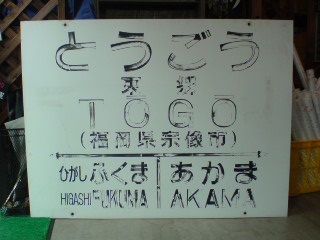 とうごう
東郷
TŌGŌ
(福岡県宗像市)
ひがしふくま あかま
HIGASHI FUKUMA AKAMA